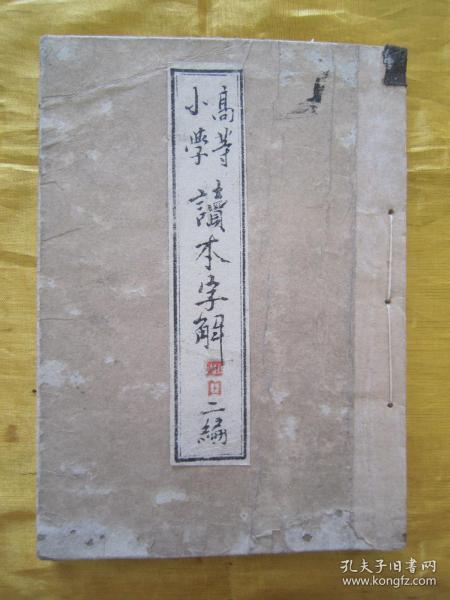 高等
小學
讀本字解
二編
孔夫子旧书网
www.kongfz.com